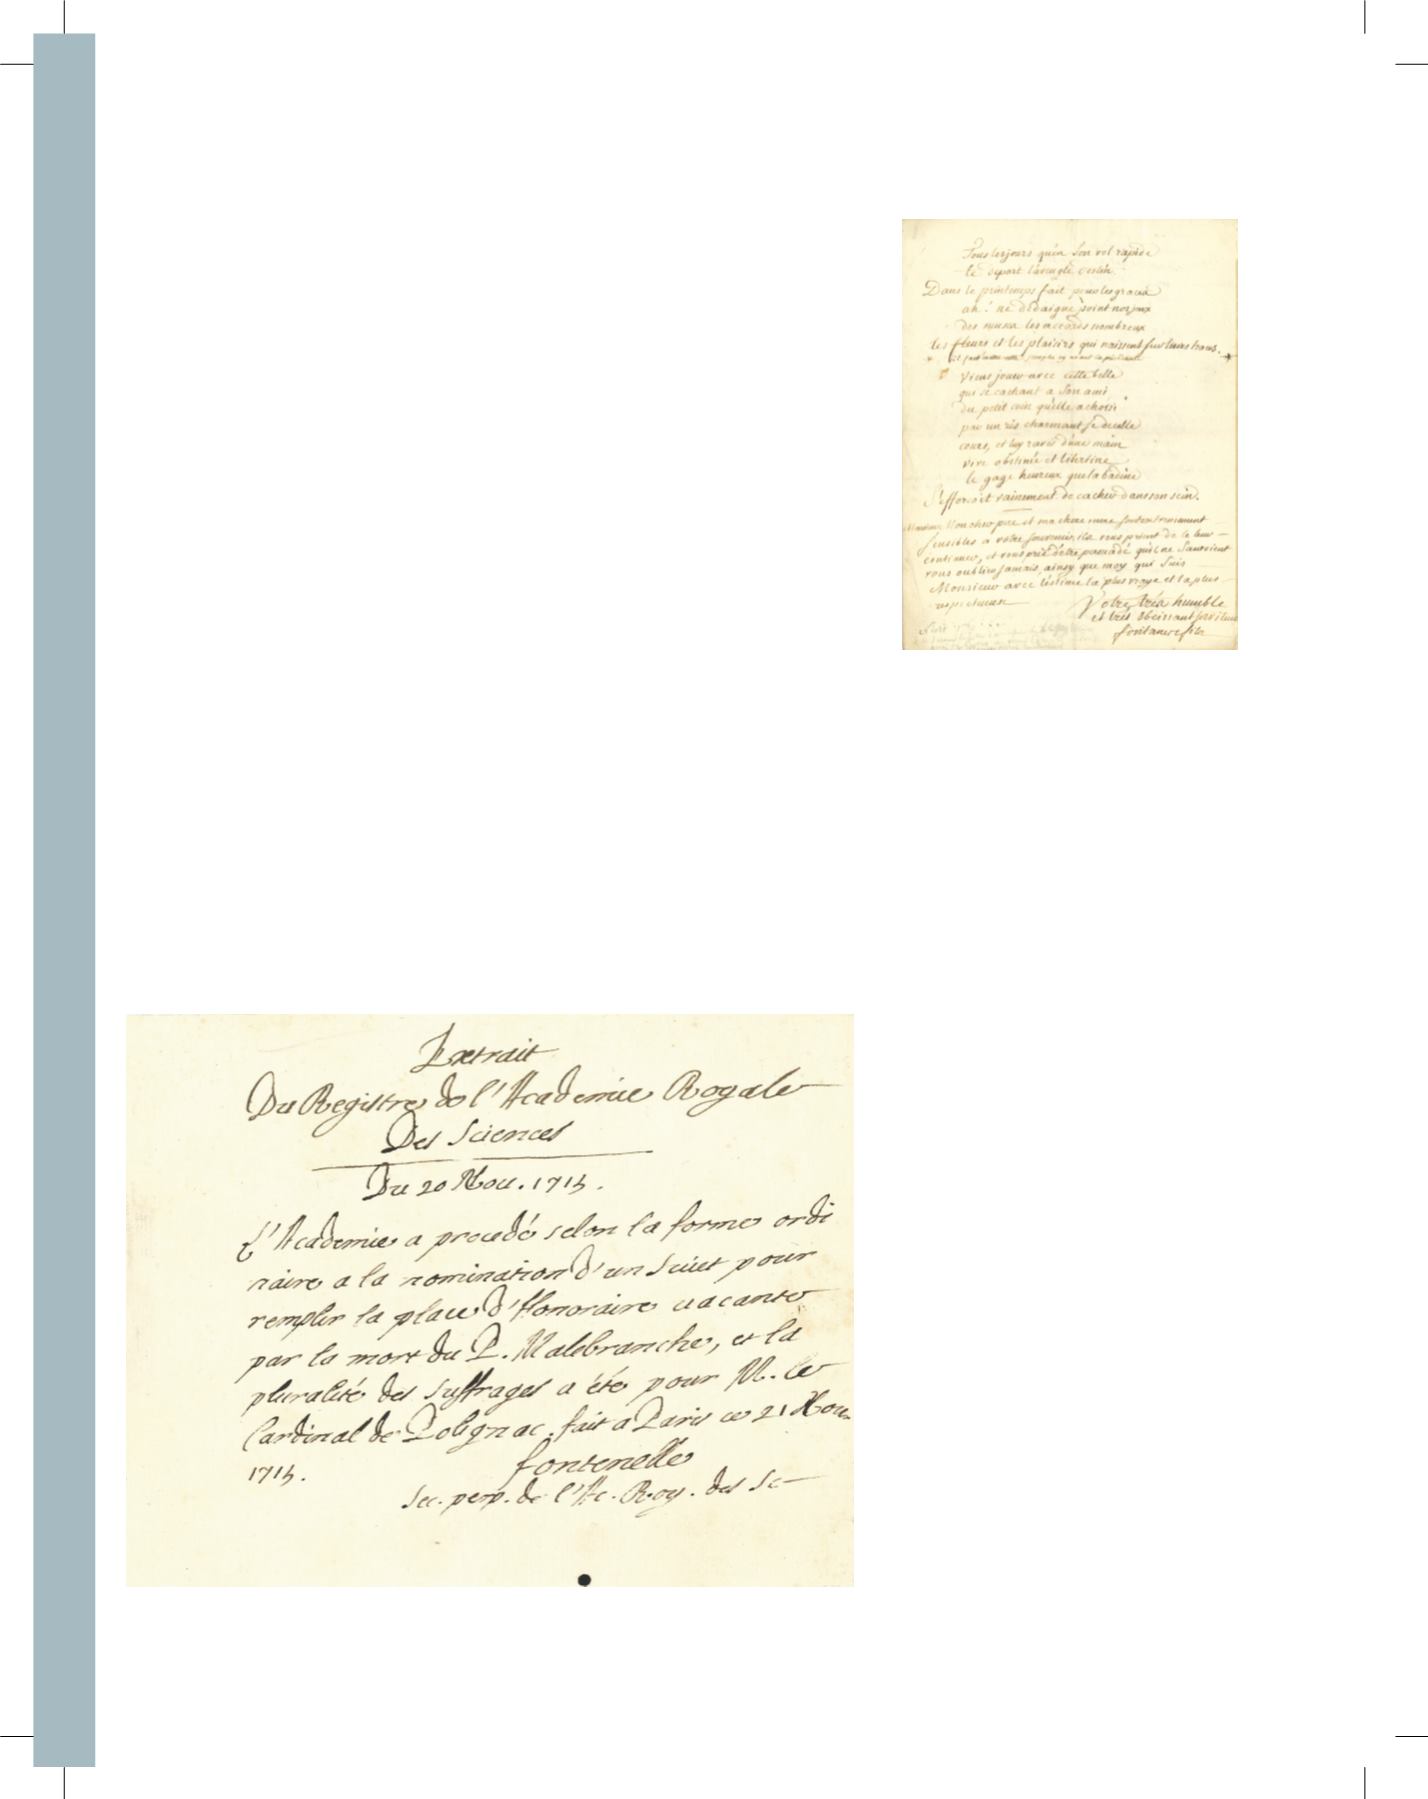 Tous les jours qu'en son vol rapide
le depart l'aveugle destin
Dans le printemps fait pour les graces
ah! ne dedaigne point nos jeux
des muses les accords nombreux
les fleurs et les plaisirs qui naissent sur leurs traces.
viens jouer avec cette belle
qui se cachant a son ami
du petit coin qu'elle a choisi
par un ris charmant se decelle
cours, et luy ravis d'une main
vive obstinée et libertine
le gage heureux que la badine
S'efforcoit vainement de cacher dans son sein.
Mon cher pere et ma chere mere sont extremement
sensibles a votre souvenir, ils vous prient de le leur
continuer, et vous prie d'etre persuadé qu'ils ne sauroient
vous oublier jamais, ainsy que moy qui suis
Monsieur avec l'estime la plus vraye et la plus
respectueuse
Votre très humble
et très obeissant serviteur
fontanes fils
Extrait
Du Registre de l'Academie Royale
Des Sciences
Du 20 Nou. 1715.
L'Academie a procedé selon la forme ordi
naire a la nomination d'un suiet pour
remplir la place d'Honoraire uacante
par la mort du P. Malebranche, et la
pluralité des suffrages a été pour M. le
Cardinal de Polignac. fait a Paris ce 21 Nou.
1715.
fontenelle
Sec. perp. de l'Ac. Roy. des Sc